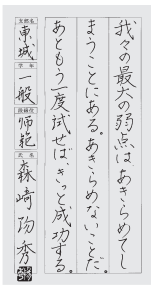 我々の最大の弱点はあきらめてし
まうことにある。あきらめないことだ。
あともう一度試せば、きっと成功する。
支部名
東城
学年
一般
段級位
師範
氏名
森崎